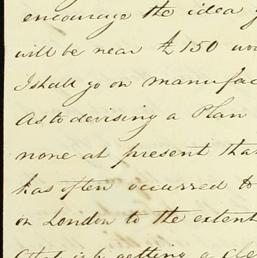 encourage the idea
will be near £150 wo
I shall go on manufac
As to devising a Plan
none at present that
has often occurred to
on London to the extent
that is by getting a cle